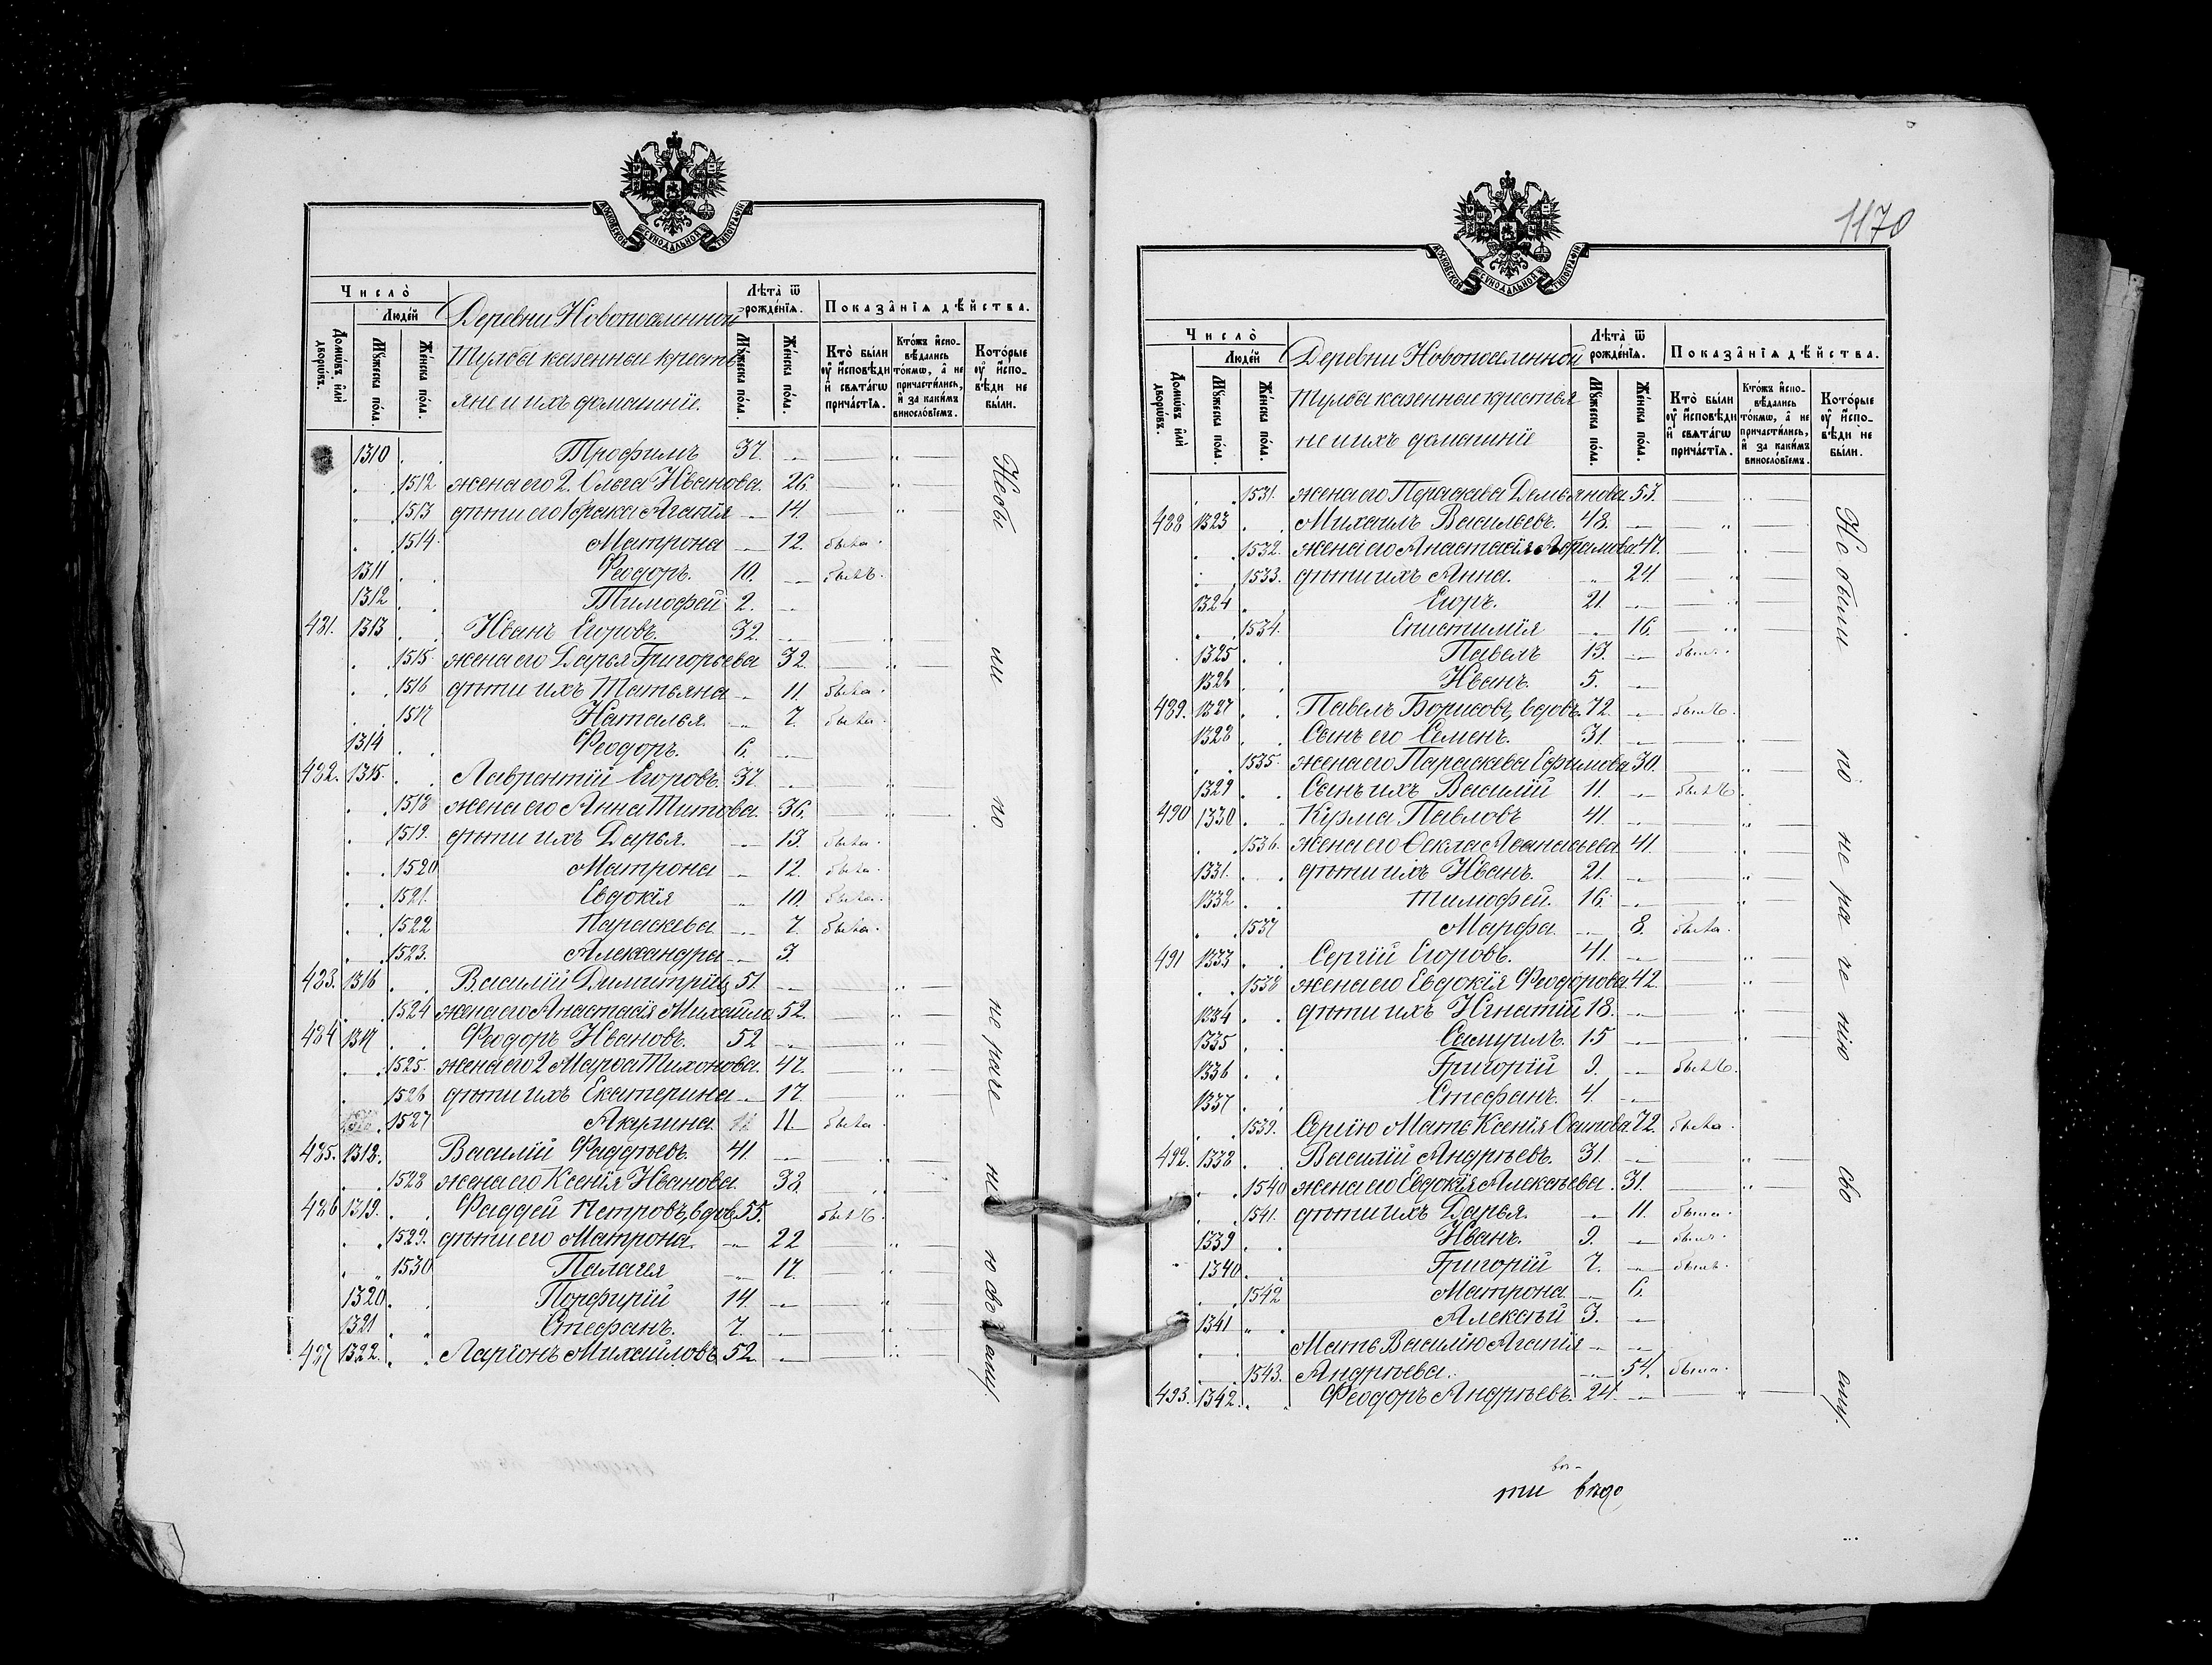 МОСКОВСКОЙ СѴНОДАЛЬНОЙ ТИПОГРАФІИ
Число̀
Людей
Домѡ́въ и҆лѝ дворѡ́въ.
Мꙋ́жеска по́ла.
Же́нска по́ла.
Деревни Новопоселенной
Тулбы казенные кресть
яне и ихъ домашніе.
Лѣта̀ ѿ рожде́нїѧ.
Мꙋ́жеска по́ла.
Же́нска по́ла.
Показа̂нїѧ дѣ́йства.
Кто̀ бы́ли ᲂу҆ и҆сповѣ́ди и҆ свѧта́гѡ прича́стїѧ.
Кто́жъ и҆спо-вѣ́дались то́кмѡ, а҆ не причасти́лись, и҆ за каки́мъ виносло́вїемъ.
Кото́рые ᲂу҆ и҆спо-вѣ́ди не бы́ли.
1310 Трофимъ 37. — „ —
1512 жена его 2. Ольга Иванова. 26. — „ —
1513 дѣти его 1 брака Агапія 14. — „
1514 Матрона 12. была.
1311 Ѳеодоръ. 10. былъ.
1312 Тимофей 2.
481. 1313 Иванъ Егоровъ. 32. — „
1515 жена его Дарья Григорьева 32. — „ —
1516 дѣти ихъ Татьяна 11 была.
1517 Наталья. 7. была.
1314 Ѳеодоръ. 6.
482. 1315. Лаврентій Егоровъ. 37. — „
1518 жена его Анна Титова. 36. — „ —
1519. дѣти ихъ Дарья. 13. была.
1520 Матрона 12. была.
1521. Евдокія 10. была.
1522 Параскева 7. была.
1523. Александра 3.
483. 1316 Василій Димитріев 51. — „ —
1524 жена его Анастасія Михайло 52. — „ —
484 1317 Ѳеодоръ Ивановъ. 52 — „
1525. жена его 2 Марѳа Тихонова. 47. — „ —
1526 дѣти ихъ Екатерина 17. — „ —
1527 Акулина 11 была.
485. 1318. Василій Фаддѣевъ. 41. — „ —
1528 жена его Ксенія Иванова. 38. — „
486 1319. Фаддей Петровъ, вдов. 55. былъ.
1529. дѣти его Матрона. 22 — „ —
1530 Палагея 17. — „ —
1320 Порфирій 14. — „ —
1321 Стефанъ. 7. — „ —
487 1322. Ларіонъ Михайловъ 52. — „ —
Не бы ли по не раче ні ю сво ему
1170
МОСКОВСКОЙ СѴНОДАЛЬНОЙ ТИПОГРАФІИ
Число̀
Людей
Домѡ́въ и҆лѝ дворѡ́въ.
Мꙋ́жеска по́ла.
Же́нска по́ла.
Деревни Новопоселенной
Тулбы казенные крестья
не и ихъ домашніе
Лѣта̀ ѿ рожде́нїѧ.
Мꙋ́жеска по́ла.
Же́нска по́ла.
Показа̂нїѧ дѣ́йства.
Кто̀ бы́ли ᲂу҆ и҆сповѣ́ди и҆ свѧта́гѡ прича́стїѧ.
Кто́жъ и҆спо-вѣ́дались то́кмѡ, а҆ не причасти́лись, и҆ за каки́мъ виносло́вїемъ.
Кото́рые ᲂу҆ и҆спо-вѣ́ди не бы́ли.
1531. жена его Параскева Демьянова 53. — „ —
488 1323 Михаилъ Васильевъ. 48. — „ —
1532. жена его Анастасія Абрамова 47. — „ —
1533. дѣти ихъ Анна. 24. — „ —
1324 Егоръ. 21. — „ —
1534. Епистимія 16. — „ —
1325 Павелъ 13. былъ.
1326 Иванъ. 5.
489. 1327 Павелъ Борисовъ, вдовъ. 72. былъ.
1328 Сынъ его Семенъ. 31. — „ —
1535. жена его Параскева Ефимова 30. — „ —
1329 Сынъ ихъ Василій 11. былъ.
490 1330 Кузма Павловъ 41. — „ —
1536. жена его Ѳекла Аѳанасьева 41. — „ —
1331. дѣти ихъ Иванъ. 21. — „ —
1332 Тимофей. 16. — „ —
1537 Марфа. 8. была.
491 1333 Сергій Егоровъ. 41. — „ —
1538 жена его Евдокія Ѳеодорова. 42. — „ —
1334 дѣти ихъ Игнатій 18. — „ —
1335 Самуилъ. 15 — „ —
1336 Григорій 9. былъ.
1337 Стефанъ. 4.
1539. Сергію Мать Ксенія Осипова. 72. была.
492. 1338 Василій Андрѣевъ. 31. — „ —
1540 жена его Евдокія Алексѣева. 31. — „ —
1541. дѣти ихъ Дарья. 11. была.
1339 Иванъ. 9. былъ.
1340 Григорій 7. былъ.
1542 Матрона. 6.
1341 Алексѣй 3.
Мать Василію Агапія
1543. Андрѣева. 54. была.
493. 1342. Ѳеодоръ Андрѣевъ. 24. — „ —
Не были по не ра че нію сво ему.
ти вѣдо